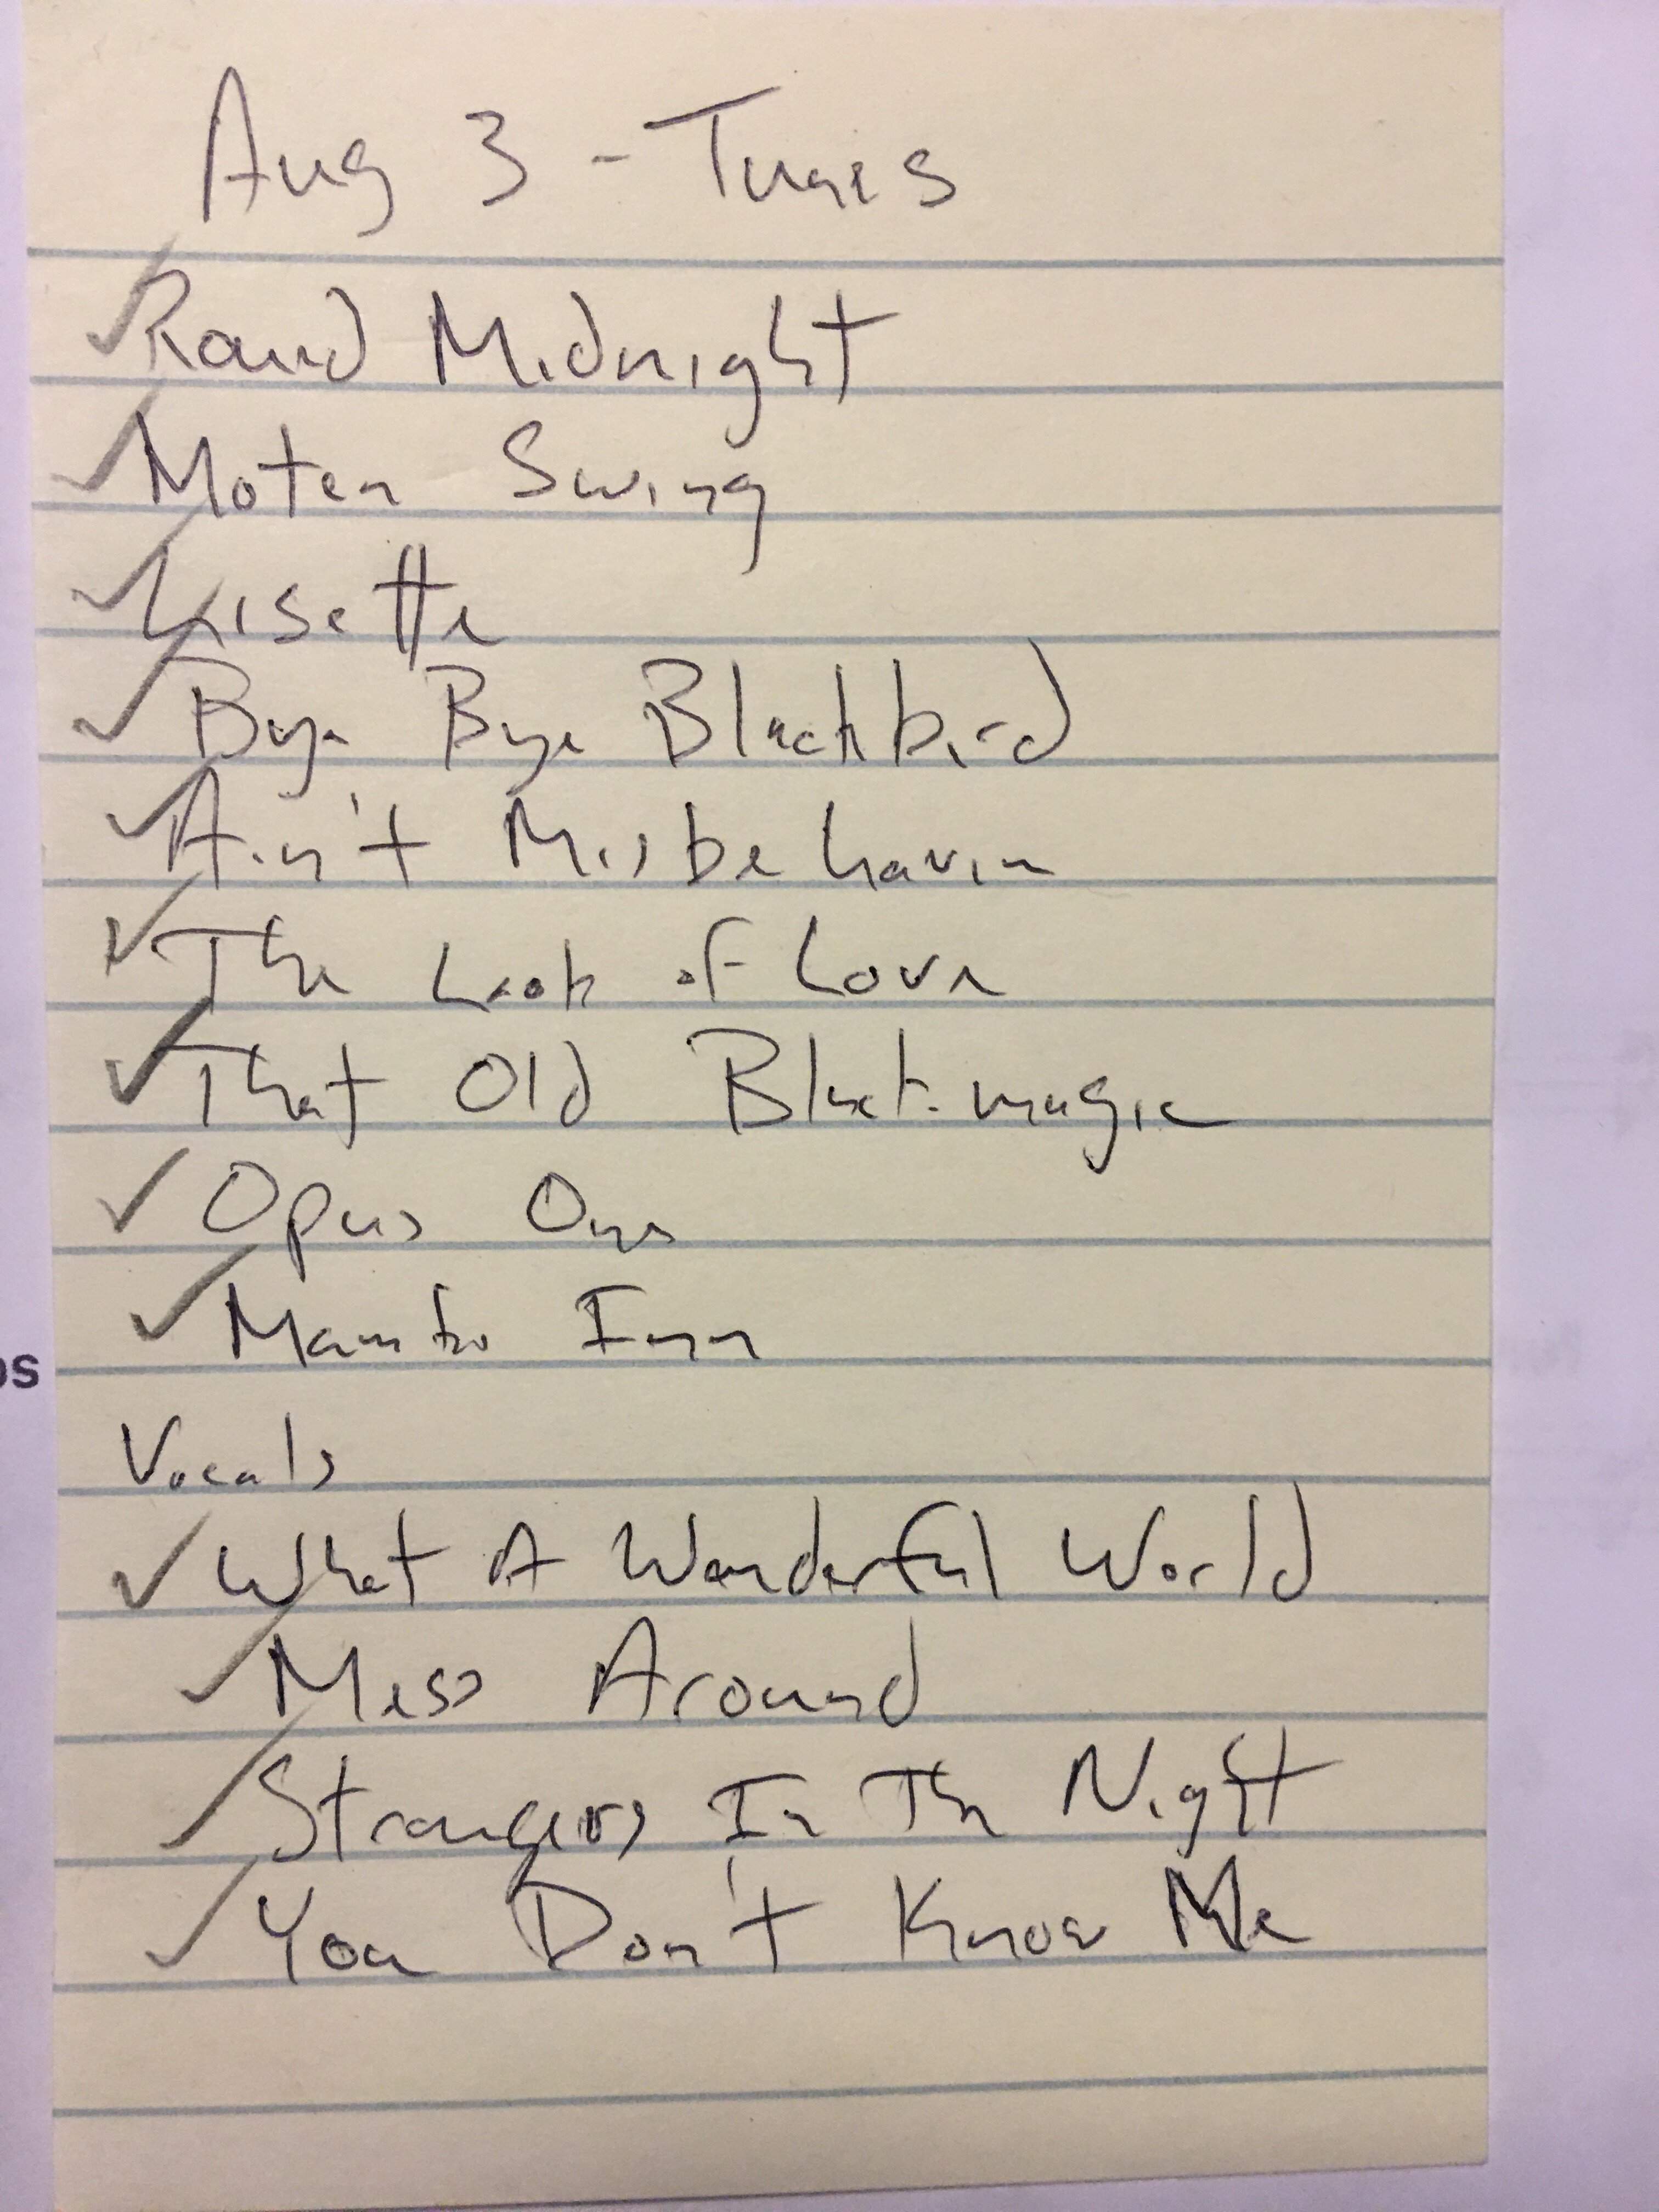 Aug 3 - Tunes
✓ Round Midnight
✓ Moten Swing
✓ Lisette
✓ Bye Bye Blackbird
✓ Ain't Misbehavin
✓ The Look of Love
✓ That Old Black magic
✓ Opus One
✓ Mambo Inn
os
Vocals
✓ What A Wonderful World
✓ Mess Around
✓ Strangers In The Night
✓ You Don't Know Me